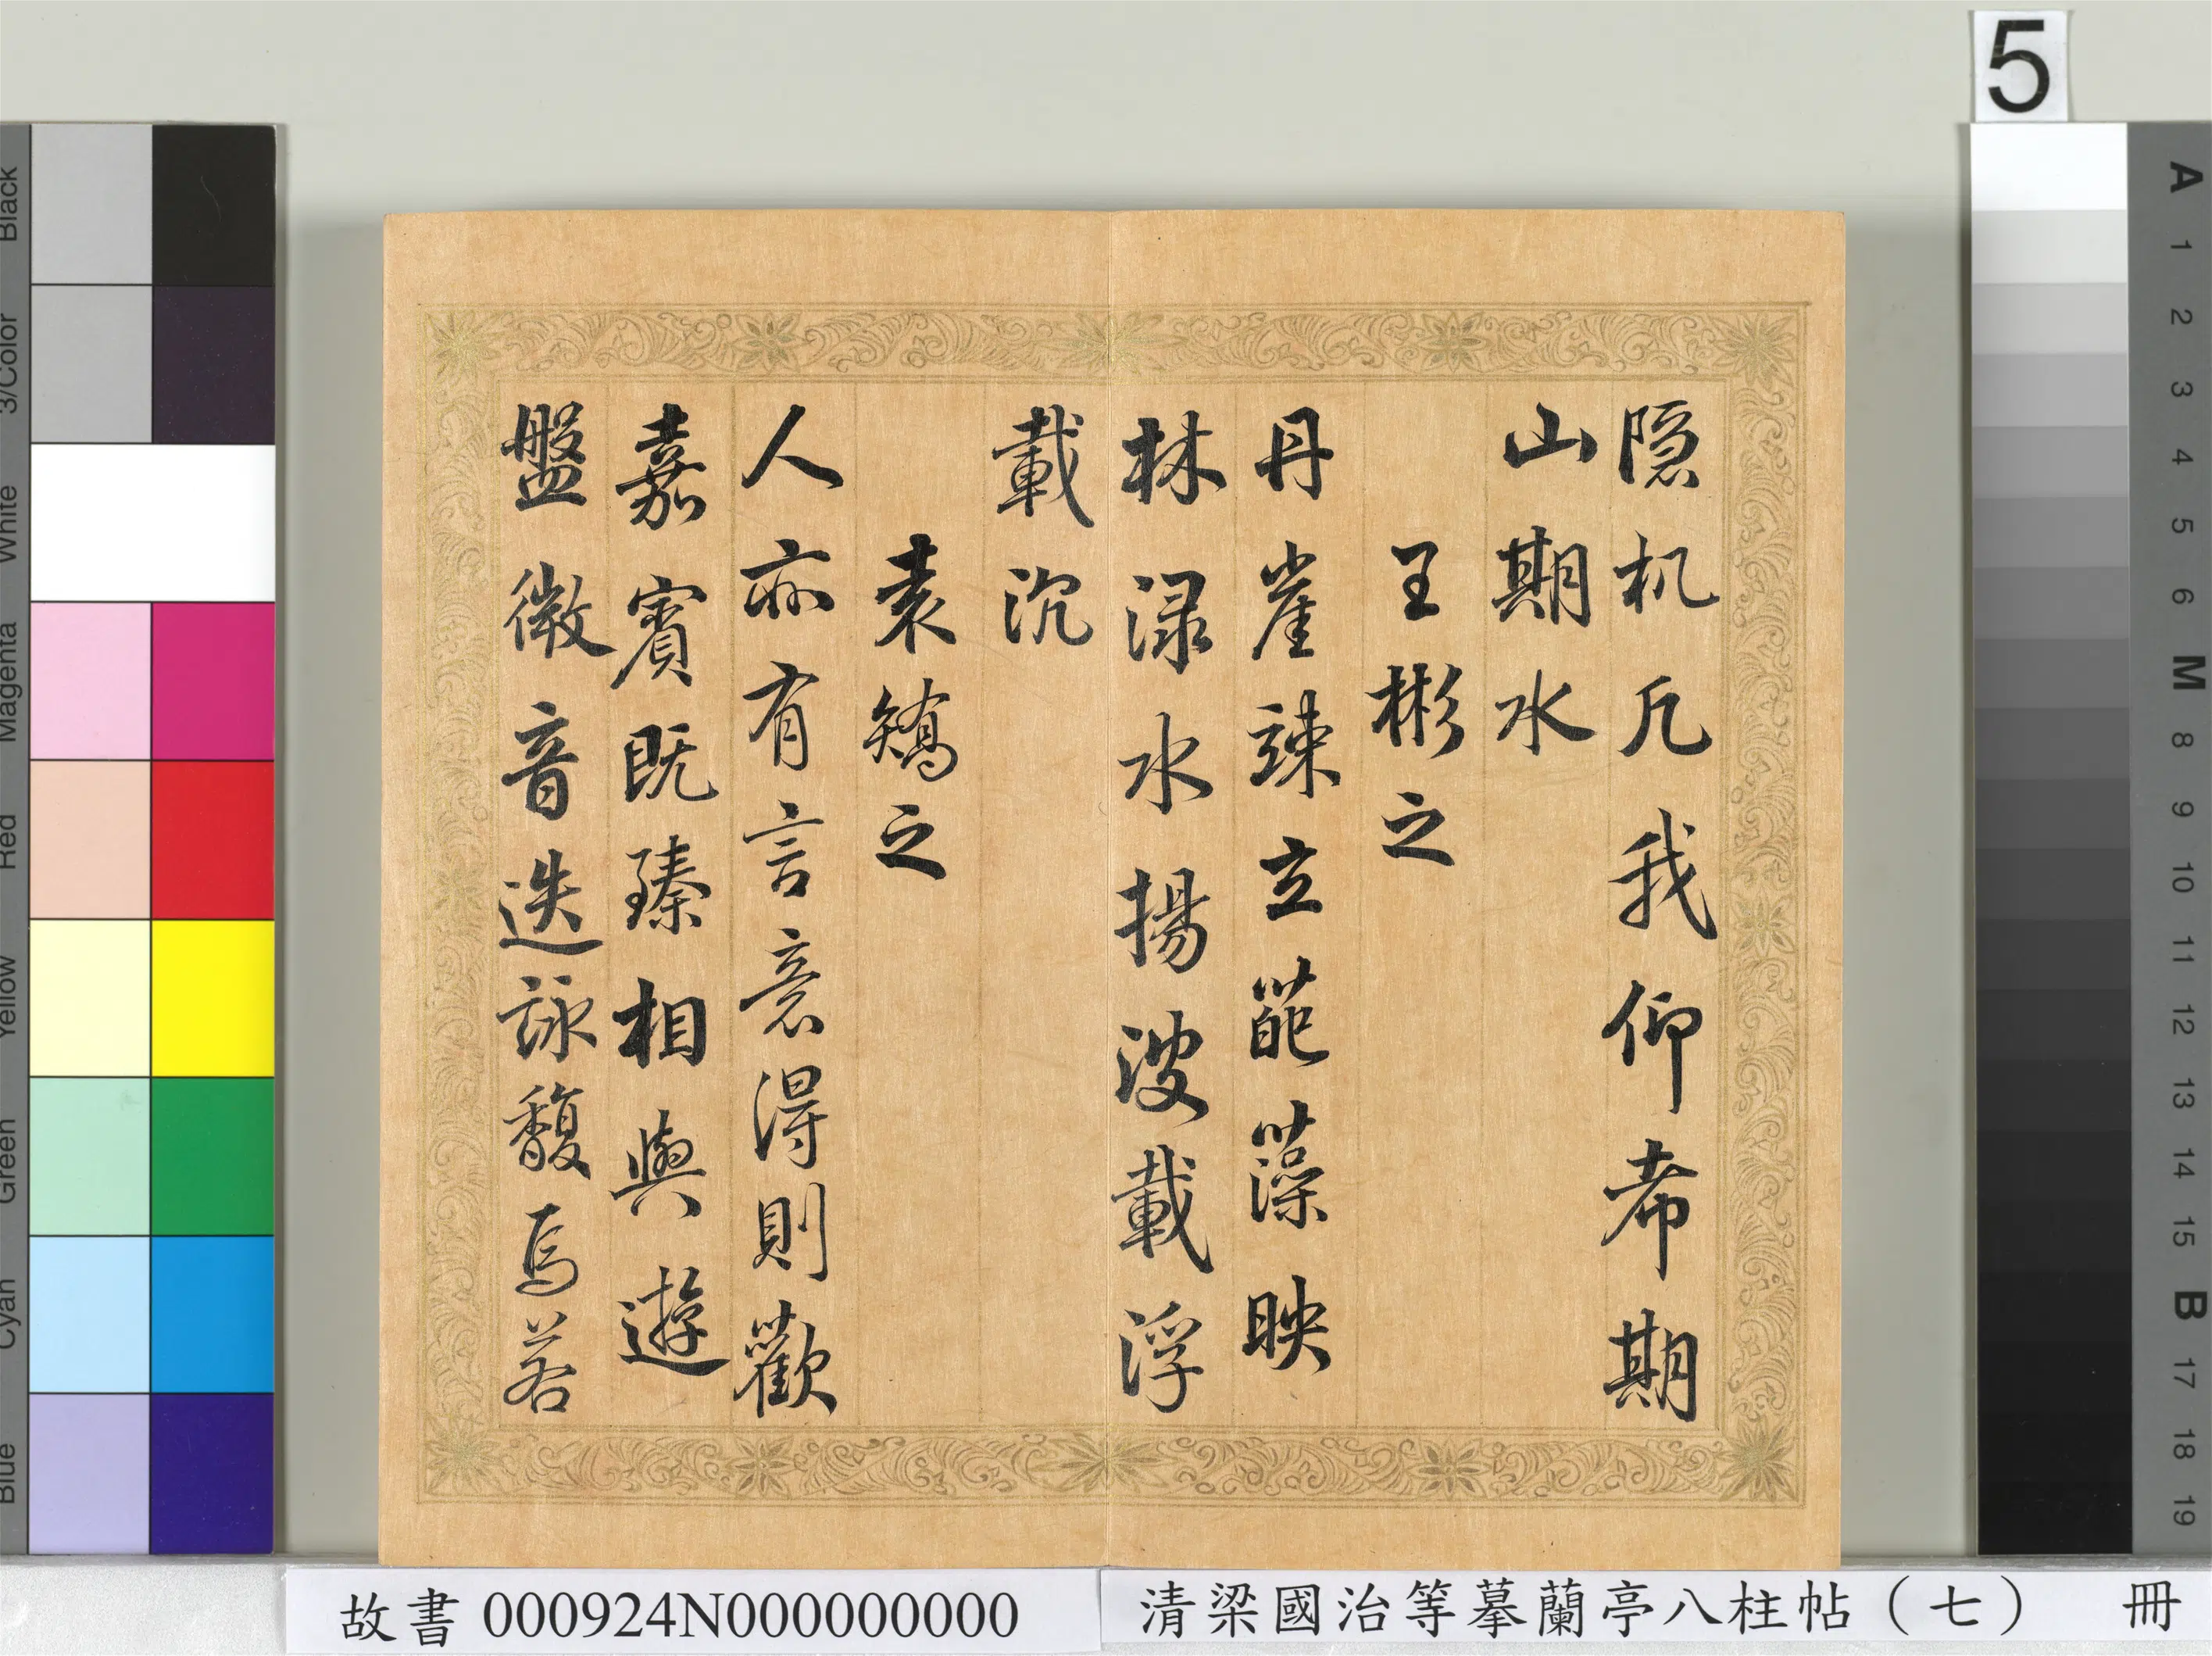 5
隐机凡我仰希期
山期水
王彬之
丹崖竦立葩藻映
林渌水揚波載浮
載沉
袁矯之
人亦有言意得則歡
嘉賓既臻相與遊
盤微音迭詠馥焉若
Black
3/Color
White
Magenta
Red
Yellow
Green
Cyan
Blue
A
1
2
3
4
5
6
M
8
9
10
11
12
13
14
15
B
17
18
19
故書 000924N000000000
清梁國治等摹蘭亭八柱帖（七） 冊